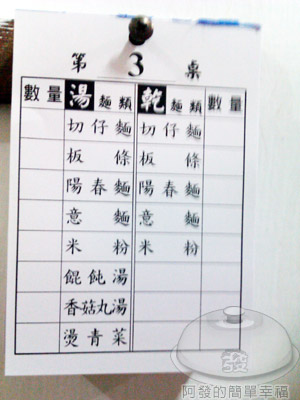 第 3 桌
數量 湯麵類 乾麵類 數量
切仔麵 切仔麵
板條 板條
陽春麵 陽春麵
意麵 意麵
米粉 米粉
餛飩湯
香菇丸湯
燙青菜
發
阿發的簡單幸福